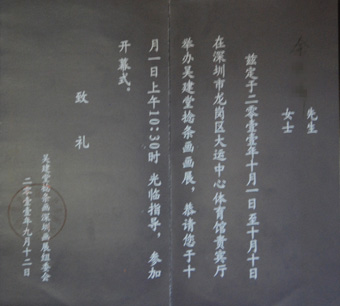 先生
女士
兹定于二零壹壹年十月一日至十月十日
在深圳市龙岗区大运中心体育馆贵宾厅
举办吴建堂枱条画画展，恭请您于十
月一日上午10:30时 光临指导，参加
开幕式。
致
礼
吴建堂枱条画深圳画展组委会
二零壹壹年九月十二日